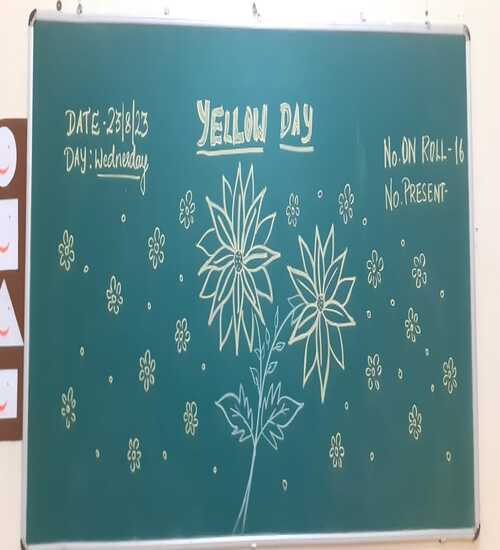 YELLOW DAY
DATE-23/8/23
DAY: Wednesday
No. ON ROLL-16
No. PRESENT-